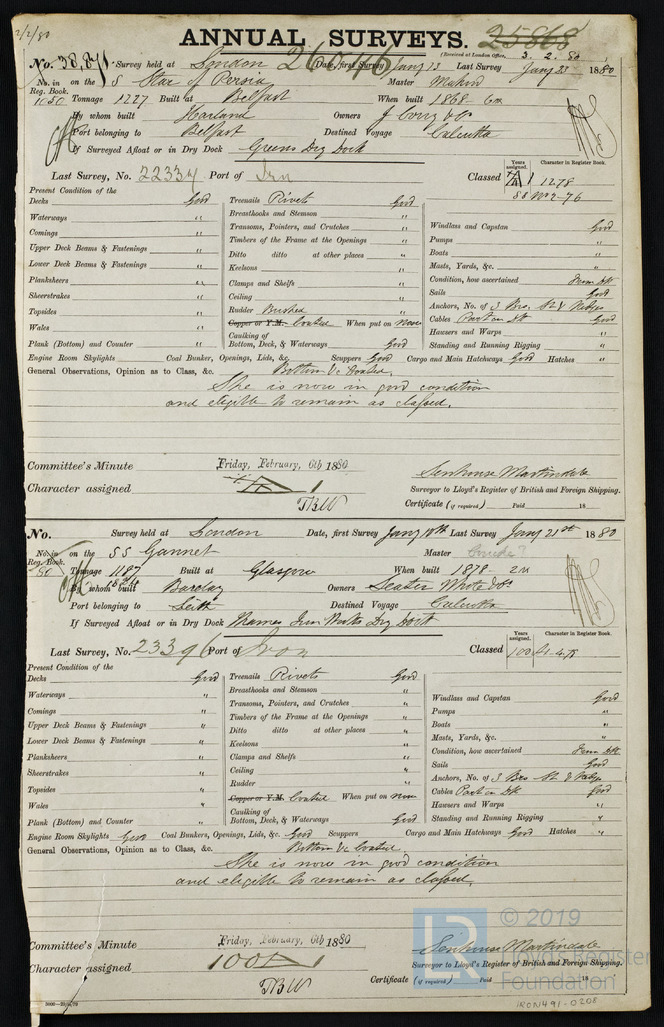 2/2/80
ANNUAL SURVEYS. 25868
(Received at London Office, 3. 2. 80
No. 38,871 Survey held at London 26046 Date, first Survey Jany 13 Last Survey Jany 23 1880
No. in on the S Star of Persia Master
Reg. Book.
1050 Tonnage 1227 Built at Belfast When built 1868 6
By whom built Harland Owners J Corry & Co
Port belonging to Belfast Destined Voyage Calcutta
If Surveyed Afloat or in Dry Dock Greens Dry Dock
Last Survey, No. 22334 Port of Irn Classed
Years assigned. Character in Register Book.
A 1 1278
Present Condition of the
Decks Good Treenails Rivets Good
Waterways " Breasthooks and Stemson "
Comings " Transoms, Pointers, and Crutches " Windlass and Capstan Good
Upper Deck Beams & Fastenings " Timbers of the Frame at the Openings " Pumps "
Lower Deck Beams & Fastenings " Ditto ditto at other places " Boats "
Keelsons " Masts, Yards, &c. "
Planksheers " Clamps and Shelfs " Condition, how ascertained from Dk
Sheerstrakes " Ceiling " Sails Good
Topsides " Rudder Bushed Anchors, No. of 3 Bro. St & Kedges
Wales " Copper or Y.M. Coated When put on now Cables Part on Dk Good
Plank (Bottom) and Counter " Caulking of Bottom, Deck, & Waterways Good Hawsers and Warps "
Standing and Running Rigging "
Engine Room Skylights Coal Bunker, Openings, Lids, &c. Scuppers Good Cargo and Main Hatchways Good Hatches "
General Observations, Opinion as to Class, &c. Bottom &c Coated.
She is now in good condition
and eligible to remain as classed.
Committee's Minute Friday, February, 6th 1880
Character assigned A 1
Senhouse Martindale
Surveyor to Lloyd's Register of British and Foreign Shipping.
TBW
Certificate (if required) Paid 18
No. Survey held at London Date, first Survey Jany 10th Last Survey Jany 21st 1880
No. in on the SS Gannet Master
Reg. Book.
80 Tonnage 1187 Built at Glasgow When built 1878
By whom built Barclay Owners Seater White & Co
Port belonging to Leith Destined Voyage Calcutta
If Surveyed Afloat or in Dry Dock Thames Iron Works Dry Dock
Last Survey, No. 23396 Port of Iron Classed
Years assigned. Character in Register Book.
100 A1
Present Condition of the
Decks Good Treenails Rivets Good
Waterways " Breasthooks and Stemson " Windlass and Capstan Good
Comings " Transoms, Pointers, and Crutches " Pumps "
Upper Deck Beams & Fastenings " Timbers of the Frame at the Openings " Boats "
Lower Deck Beams & Fastenings " Ditto ditto at other places " Masts, Yards, &c. "
Keelsons " Condition, how ascertained from Dk
Planksheers " Clamps and Shelfs " Sails Good
Sheerstrakes " Ceiling " Anchors, No. of 3 Bro St & Kedge
Topsides " Rudder "
Wales " Copper or Y.M. Coated When put on now Cables Part on Dk Good
Plank (Bottom) and Counter " Caulking of Bottom, Deck, & Waterways Good Hawsers and Warps "
Standing and Running Rigging "
Engine Room Skylights Good Coal Bunker, Openings, Lids, &c. Good Scuppers Cargo and Main Hatchways Good Hatches "
General Observations, Opinion as to Class, &c. Bottom &c Coated.
She is now in good condition
and eligible to remain as classed.
Committee's Minute Friday, February, 6th 1880
Character assigned 100 A 1
Senhouse Martindale
Surveyor to Lloyd's Register of British and Foreign Shipping.
TBW
Certificate (if required) Paid 18
LR © 2019
Lloyd's Register
Foundation
IRON491-0208